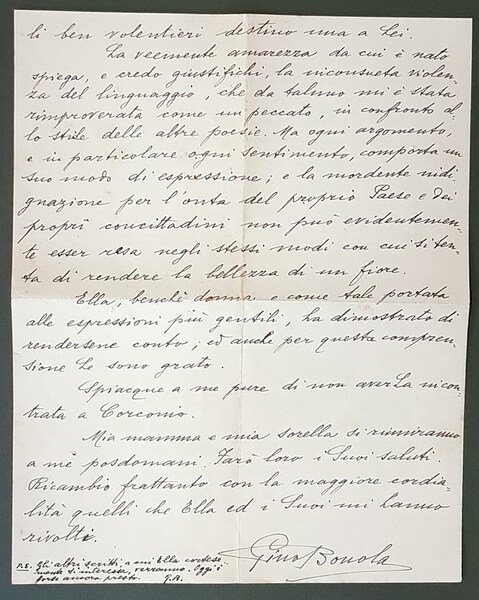 li ben volentieri destino una a Lei.
La veemente amarezza da cui è nato
spiega, e credo giustifichi, la inconsueta violen-
za del linguaggio, che da taluno mi è stata
rimproverata come un peccato, in confronto al-
lo stile delle altre poesie. Ma ogni argomento,
e in particolare ogni sentimento, comporta un
suo modo di espressione; e la mordente indi-
gnazione per l'onta del proprio Paese e dei
proprî concittadini non può evidentemen-
te esser resa negli stessi modi con cui si ten-
ta di rendere la bellezza di un fiore.
Ella, benchè donna e come tale portata
alle espressioni più gentili, ha dimostrato di
rendersene conto; ed anche per questa compren-
sione Le sono grato.
Spiacque a me pure di non averLa incon-
trata a Corconio.
Mia mamma e mia sorella si riuniranno
a me posdomani. Farò loro i Suoi saluti.
Ricambio frattanto con la maggiore cordia-
lità quelli che Ella ed i Suoi mi hanno
rivolti.
Gino Bonola
P.S. Gli altri scritti, a cui Ella cortese-
mente si interessa, verranno. Oggi è
forse ancora presto. G.B.